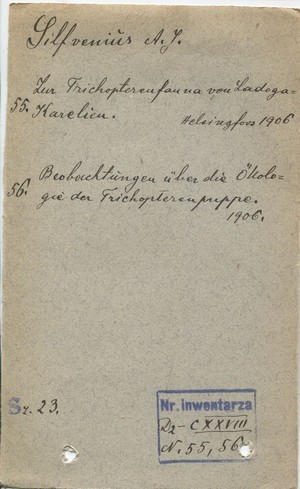 Silfvenius A. J.
Zur Trichopterenfauna von Ladoga-
55. Karelien.
Helsingfors 1906
Beobachtungen über die Ökolo-
56. gie der Trichopterenpuppe.
1906.
Sz. 23.
Nr. inwentarza
D2-CXXVIII
N. 55, 56